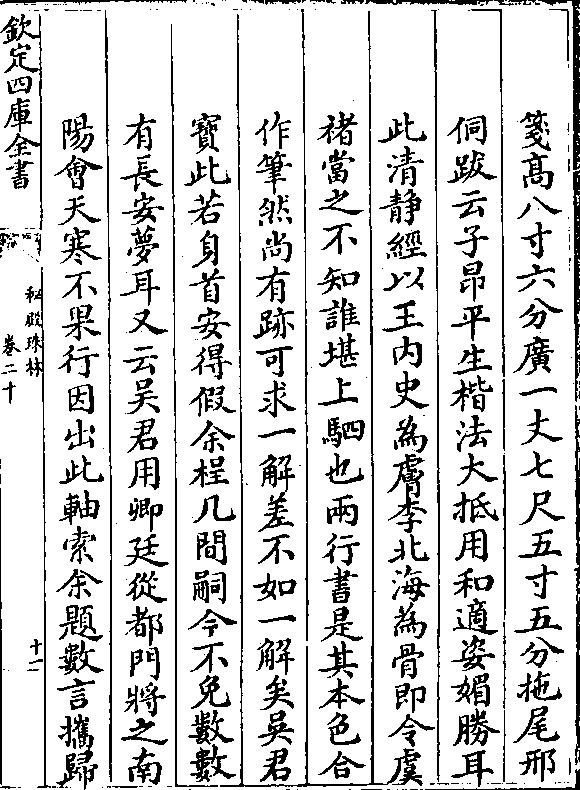 箋髙八寸六分廣一丈七尺五寸五分拖尾邢
侗跋云子昂平生楷法大抵用和適姿媚勝耳
此清靜經以王内史為膚李北海為骨即令虞
褚當之不知誰堪上駟也兩行書是其本色合
作筆然尚有跡可求一解差不如一解矣吳君
寶此若身首安得假余桯几間嗣今不免數數
有長安夢耳又云吳君用卿廷從都門將之南
陽會天寒不果行因出此軸索余題數言攜歸
欽定四庫全書
秘殿珠林
卷二十
十一